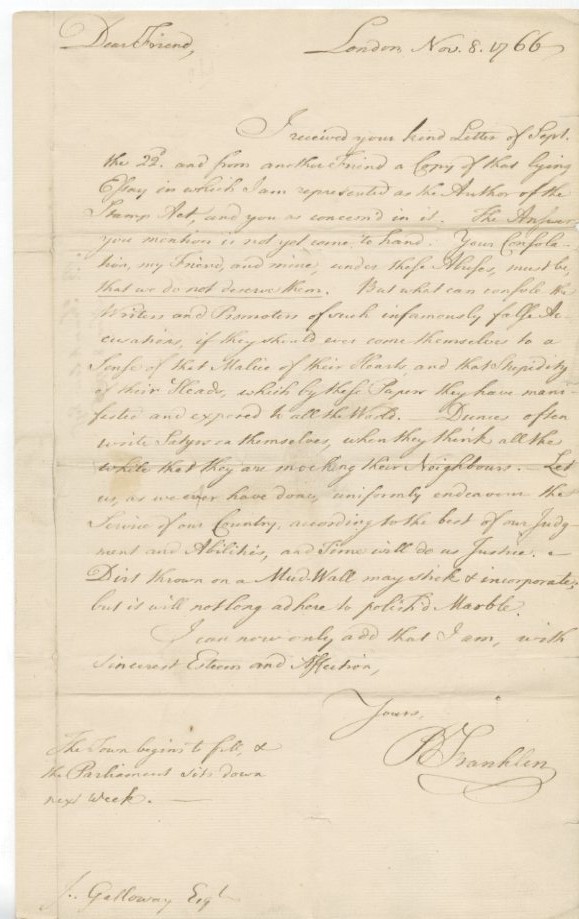 Dear Friend, London Nov. 8. 1766
I received your kind Letter of Sept.
the 22d. and from another Friend a Copy of that lying
Essay in which I am represented as the Author of the
Stamp Act, and you as concern'd in it. The Answer
you mention is not yet come to hand. Your Consola-
tion, my Friend, and mine, under these Abuses, must be,
that we do not deserve them. But what can console the
Writers and Promoters of such infamously false Ac-
cusations, if they should ever come themselves to a
Sense of that Malice of their Hearts, and that Stupidity
of their Heads, which by these Papers they have mani-
fested and exposed to all the World. Dunces often
write Satyrs on themselves, when they think all the
while that they are mocking their Neighbours. — Let
us, as we ever have done, uniformly endeavour the
Service of our Country, according to the best of our Judg-
ment and Abilities, and Time will do us Justice. —
Dirt thrown on a Mud-Wall may stick & incorporate;
but it will not long adhere to polish'd Marble.
I can now only add that I am, with
sincerest Esteem and Affection,
Yours,
B Franklin
The Town begins to fill, &
the Parliament sits down
next Week. —
J. Galloway Esqr